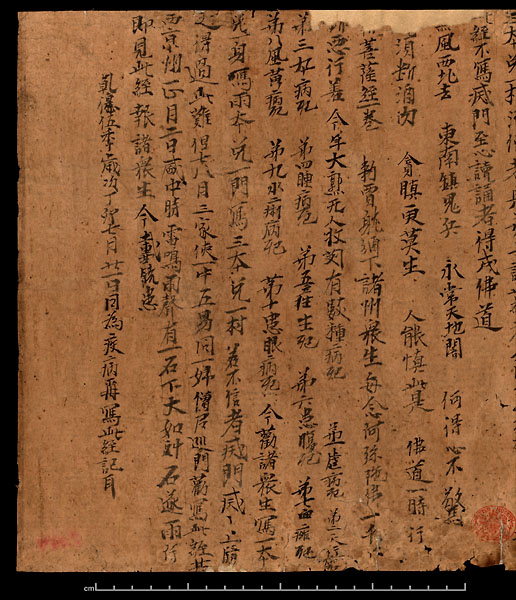 此經不寫滅門至心讀誦者得成佛道
風西北去 東南鎮鬼兵 永常天地闇 何得心不驚
須斷酒肉 貪瞋更莫生 人能慎此是 佛道一時行
菩薩經一卷 勅賈躭頒下諸州衆生每念阿弥陁佛一千
惡行善 今年大熟无人收刈有數種病死 第一虐病死 第二天行
第三卒病死 第四腫病死 第五産生死 第六患腹死 第七血癰死
第八風黃病死 第九水痢病死 第十患眼病死 今勸諸衆生寫一本
免一身寫兩本免一門寫三本免一村若不信者滅門 上牓
之得過此難但七八月三家使一牛五男同一婦僧尼巡門勸寫此經其
西京州正月二日盛中時雷鳴雨聲有一石下大如斗石遂兩片
即見此經報諸衆生今載饒患
乾德伍年歲次丁卯七月廿一日因為疾病再寫此經記耳